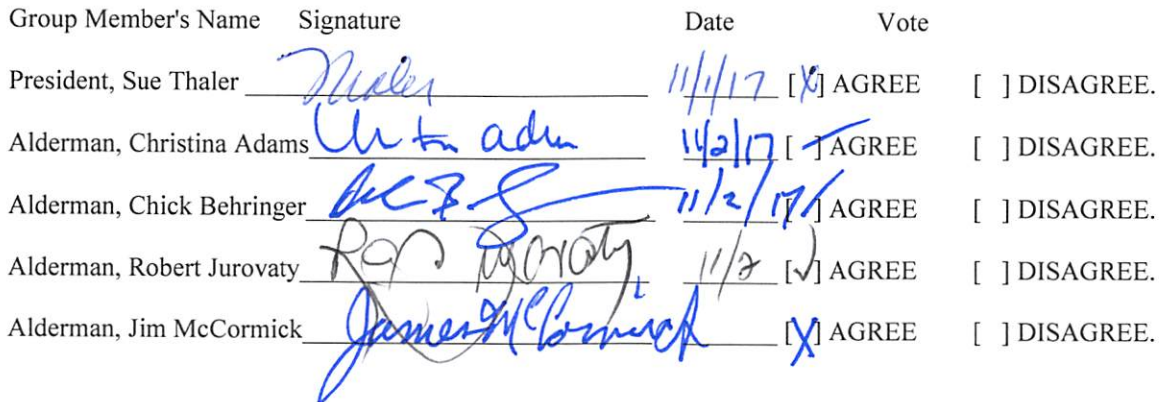 Group Member's Name Signature Date Vote
President, Sue Thaler Thaler 11/1/17 [X] AGREE [ ] DISAGREE.
Alderman, Christina Adams 11/2/17 [✓] AGREE [ ] DISAGREE.
Alderman, Chick Behringer 11/2/17 [✓] AGREE [ ] DISAGREE.
Alderman, Robert Jurovaty Jurovaty 11/2 [✓] AGREE [ ] DISAGREE.
Alderman, Jim McCormick James McCormick [X] AGREE [ ] DISAGREE.